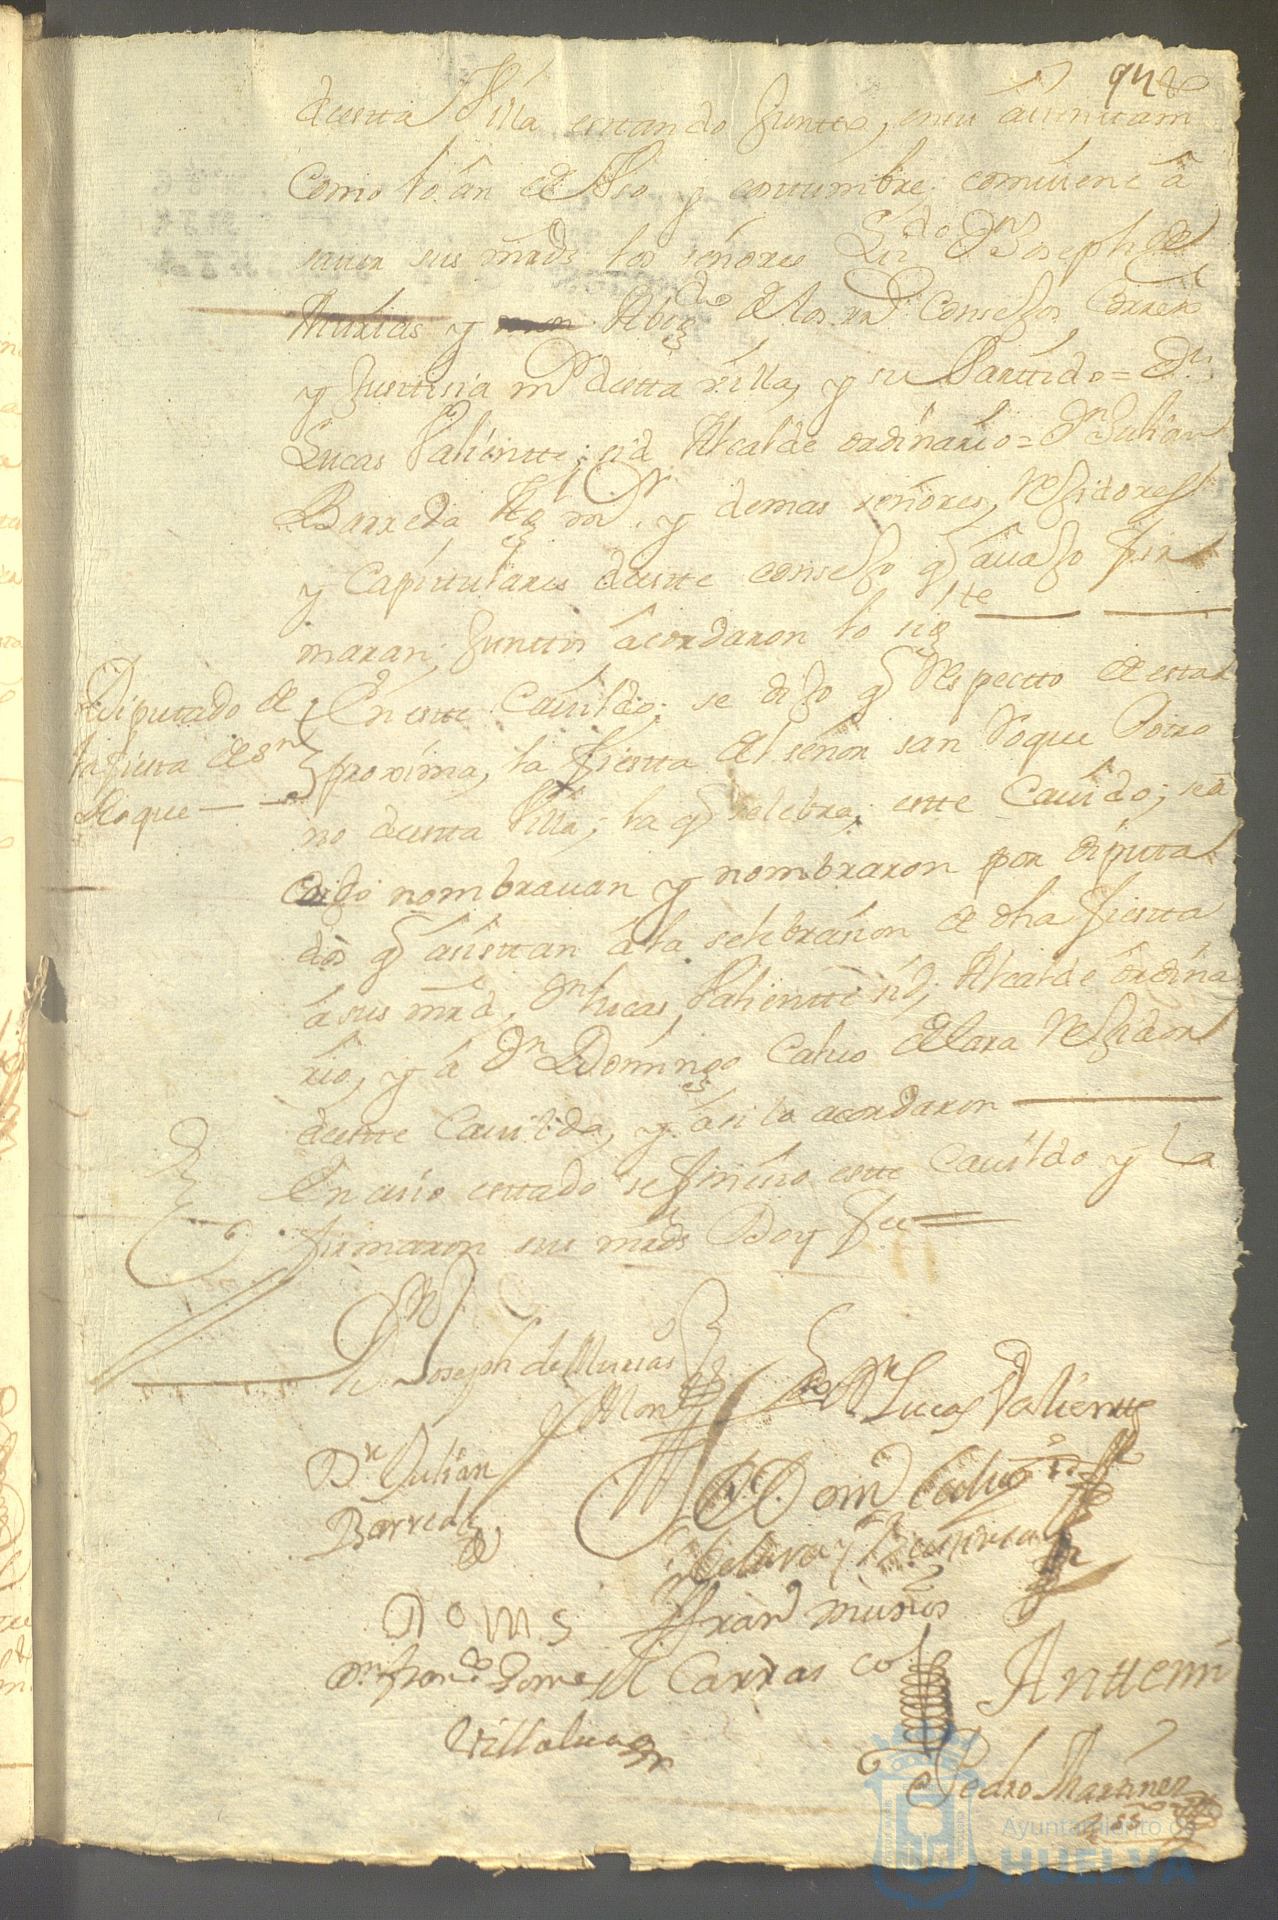 94
de esta Villa estando Juntos, en su aiuntam
como lo an de Vso y costumbre combiene â
sauer sus mrds los señores Lizdo Dn Joseph de
Murias y mon Abogdo de los rrs Consejos Correxr
y Justisia mr desta villa, y su Partido = Dn
Lucas Valiente Alcalde ordinario = Dn Julian
Barreda Alg mr. y demas señores, Rexidores
y Capitulares deeste consejo q auajo fir
maran; Junttos acordaron lo sigte
Diputado de
la fiesta de Sn
Roque
En este Cauildo; se dijo q Respectto de estar
proxima, la fiesta del señor san Roque Patro
no de esta Villa; la q selebra; este Cauido; se a
nombrauan y nombraron por diputa
dos q asistan â la selebrasion de dha fiesta
a sus mrd, Dn Lucas Valiente Alcalde ôrdina
rio, y a Dn Domingo Calvo de Lara Rexidor
deeste Cauildo, y asi lo acordaron
En cuio estado se fineuio este Cauildo y la
firmaron sus mrds Doy fee
Joseph de Murias
y Mon
Dn Lucas Valientte
Dn Julian
Barreda
Domo Calvo
de Lara y
Franco muños
Carrasco
Dn Franco Gomes
Villalua
Anttemi
Pedro Martinez
Ayuntamiento de
HUELVA